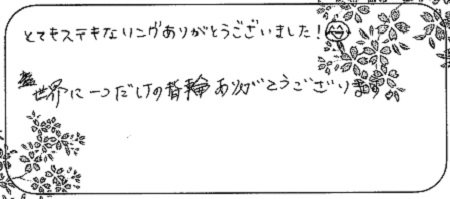 とてもステキなリングありがとうございました！
世界に一つだけの指輪ありがとうございます